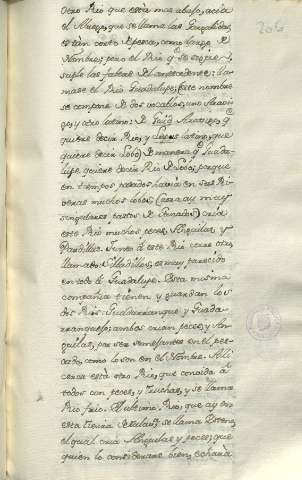 otro Rio que está mas abajo, acia
el
que se llama las
es tan corto de pesca, como largo de
Nombre; pero el Rio qe se sigue
suple las faltas del antecedente: lla-
mase el Rio Guadalupe; (este nombre
se compone de dos vocablos, uno Arabi-
go, y otro latino: de Aravigo, qe
quiere decir Rio, y Lupus latino, que
quiere decir Lobo; de manera qe Guada-
lupe quiere decir Rio de Lobos, porque
en tiempos pasados havia en sus Ri-
veras muchos lobos, (caza ay muy
singular, tantos de Venados) cria
este Rio muchos peces, Anguilas, y
Pardillas. Junto á este Rio corre otro,
llamado: es muy parecido
en todo á Guadalupe. Esta misma
compañia tienen y guardan los
dos Rios: Guadarranque y Guada-
rranquejo; ambos crian peces, y An-
guilas, por ser semejantes en el pes-
cado, como lo son en el Nombre. Alli
cerca está otro Rio, que convida á
todos con peces, y truchas, y se llama
Rio frio. El ultimo Rio, que ay en
esta tierra se llama
el qual cria Anguilas y peces; que
quien lo considerare bien, echará